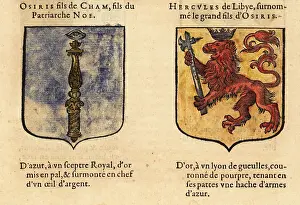 OSIRIS fils de CHAM, fils du
Patriarche NOE.
D'azur, à vn sceptre Royal, d'or
mis en pal, & surmonté en chef
d'vn œil d'argent.
HERCVLES de Libye, surnom-
mé le grand fils d'OSIRIS.
D'or, à vn lyon de gueulles, cou-
ronné de pourpre, tenant en
ses pattes vne hache d'armes
d'azur.